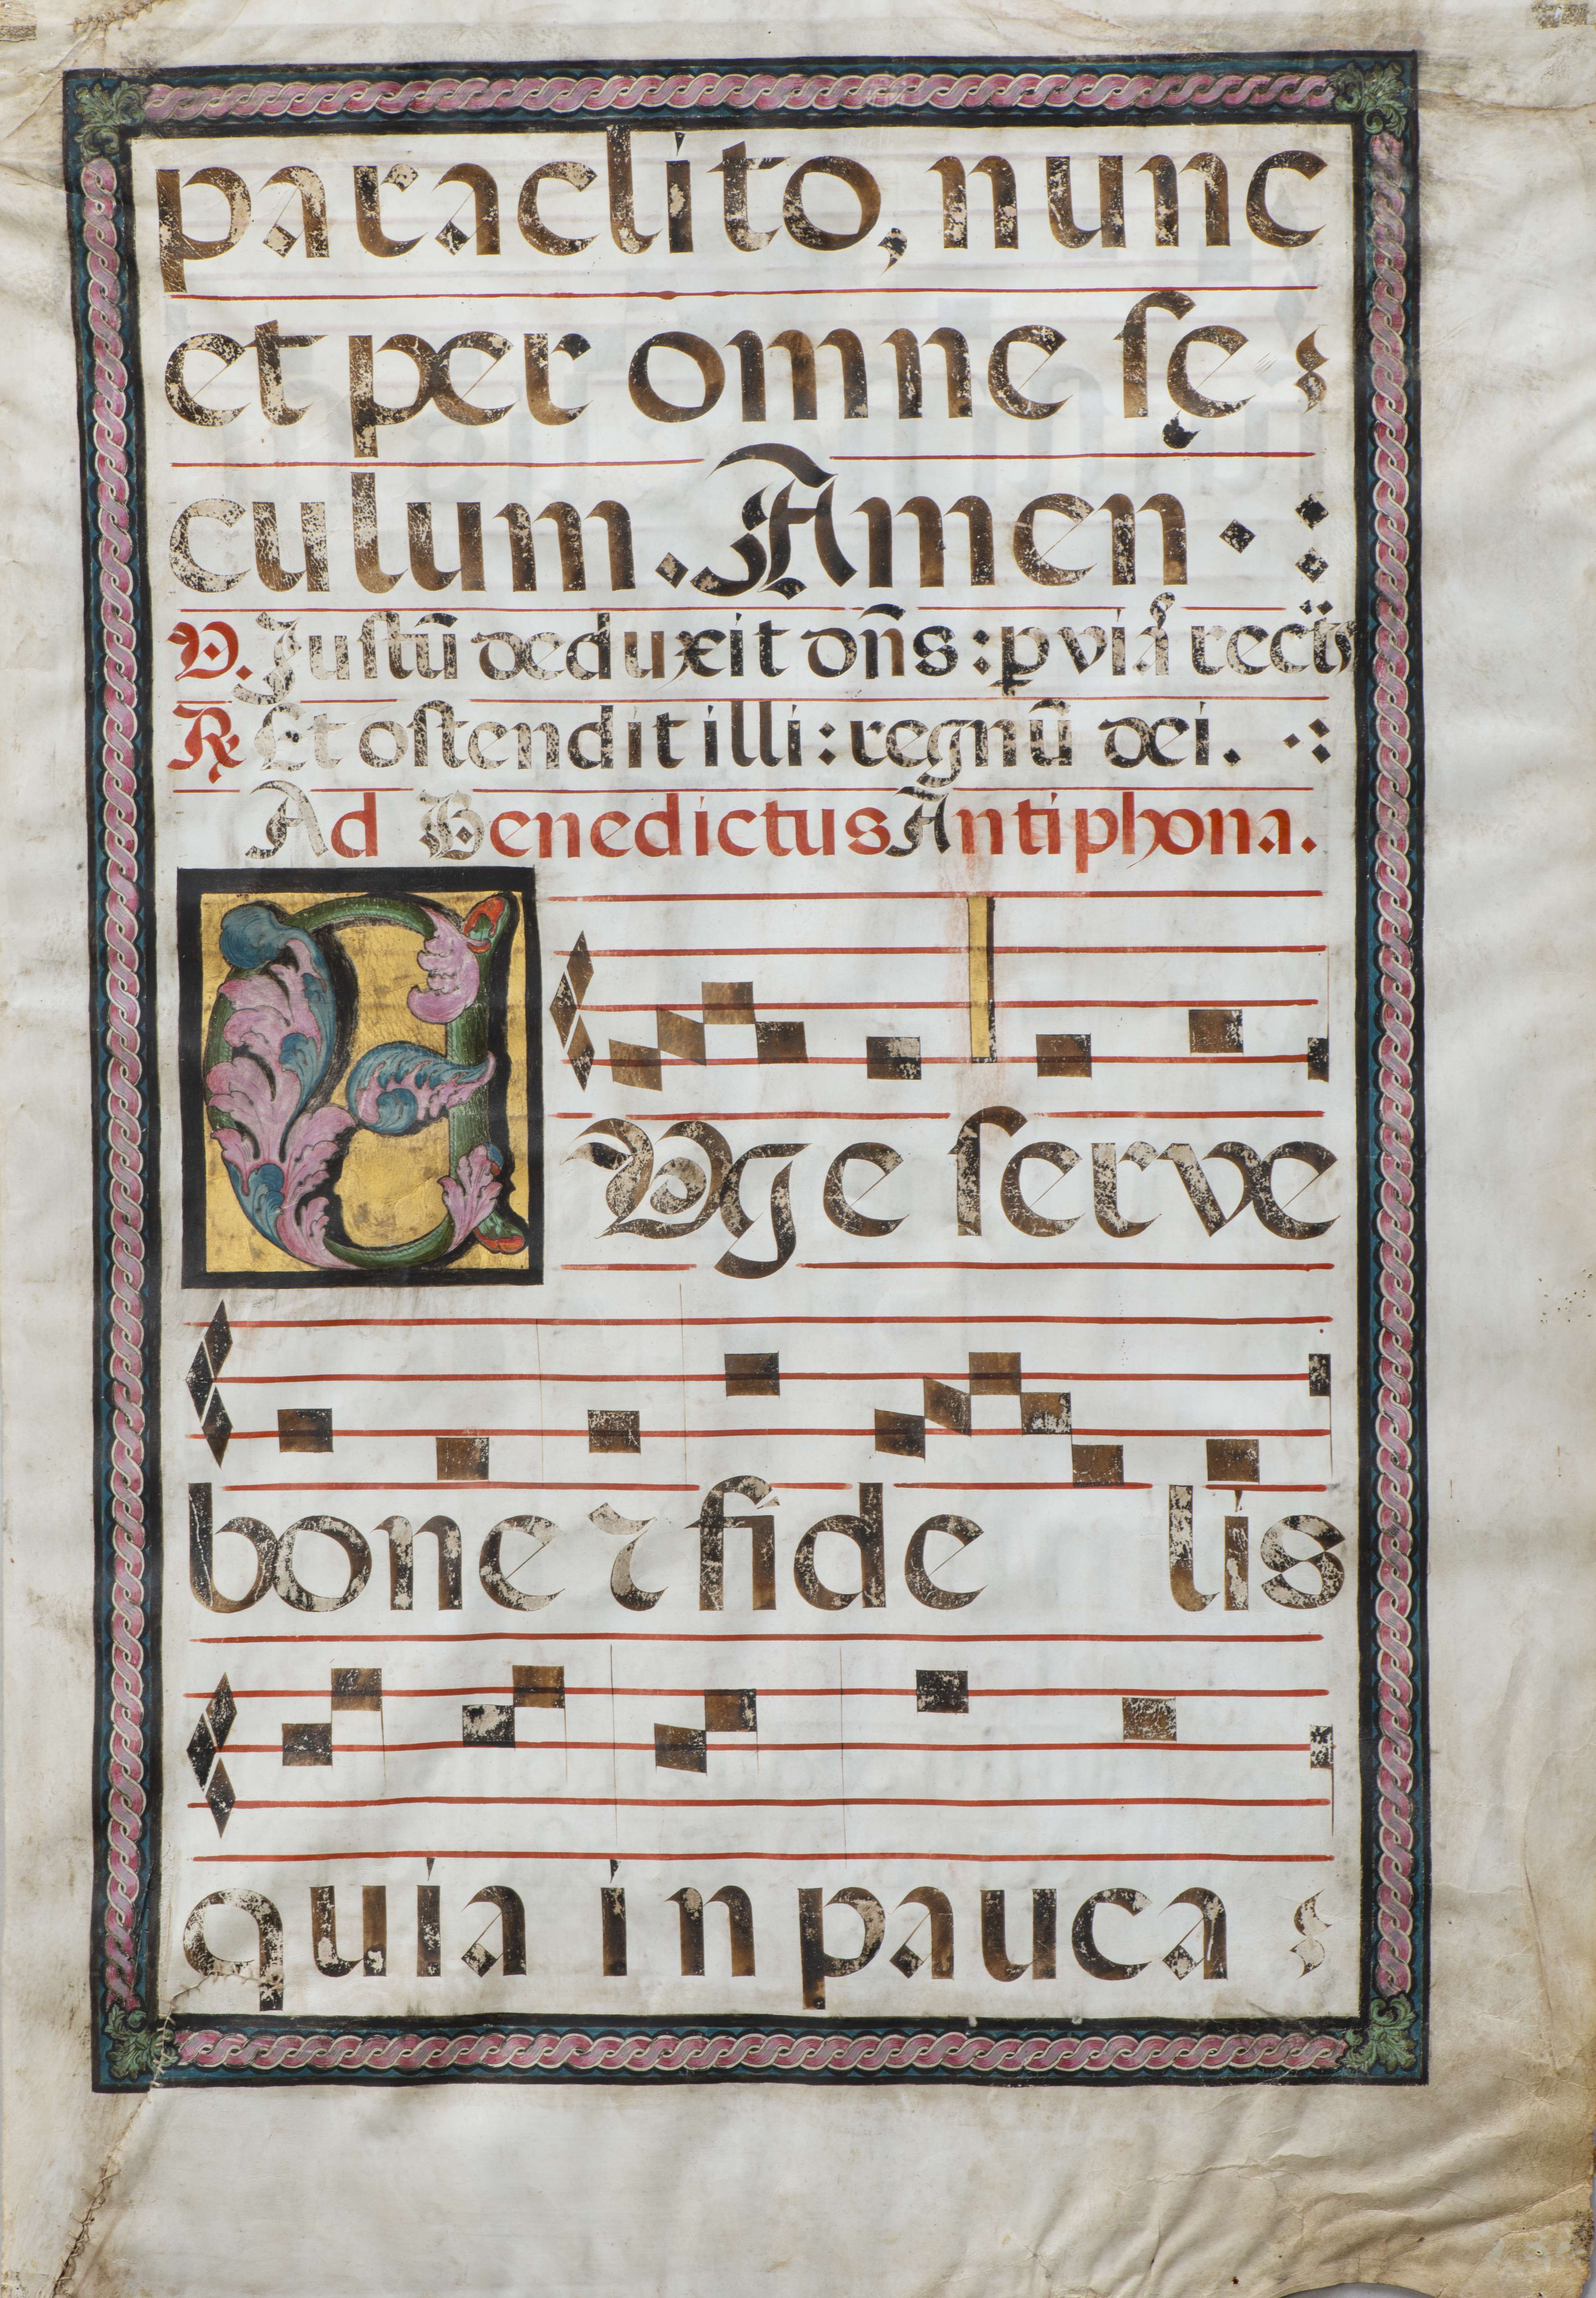 paraclito, nunc
et per omne ſę
culum. Amen.
V. Juſtū deduxit dn̄s: p viā rectā
R Et oſtendit illi: regnū dei.
Ad Benedictus Antiphona.
EVge ſerve
bone ⁊ fidelis
quia in pauca